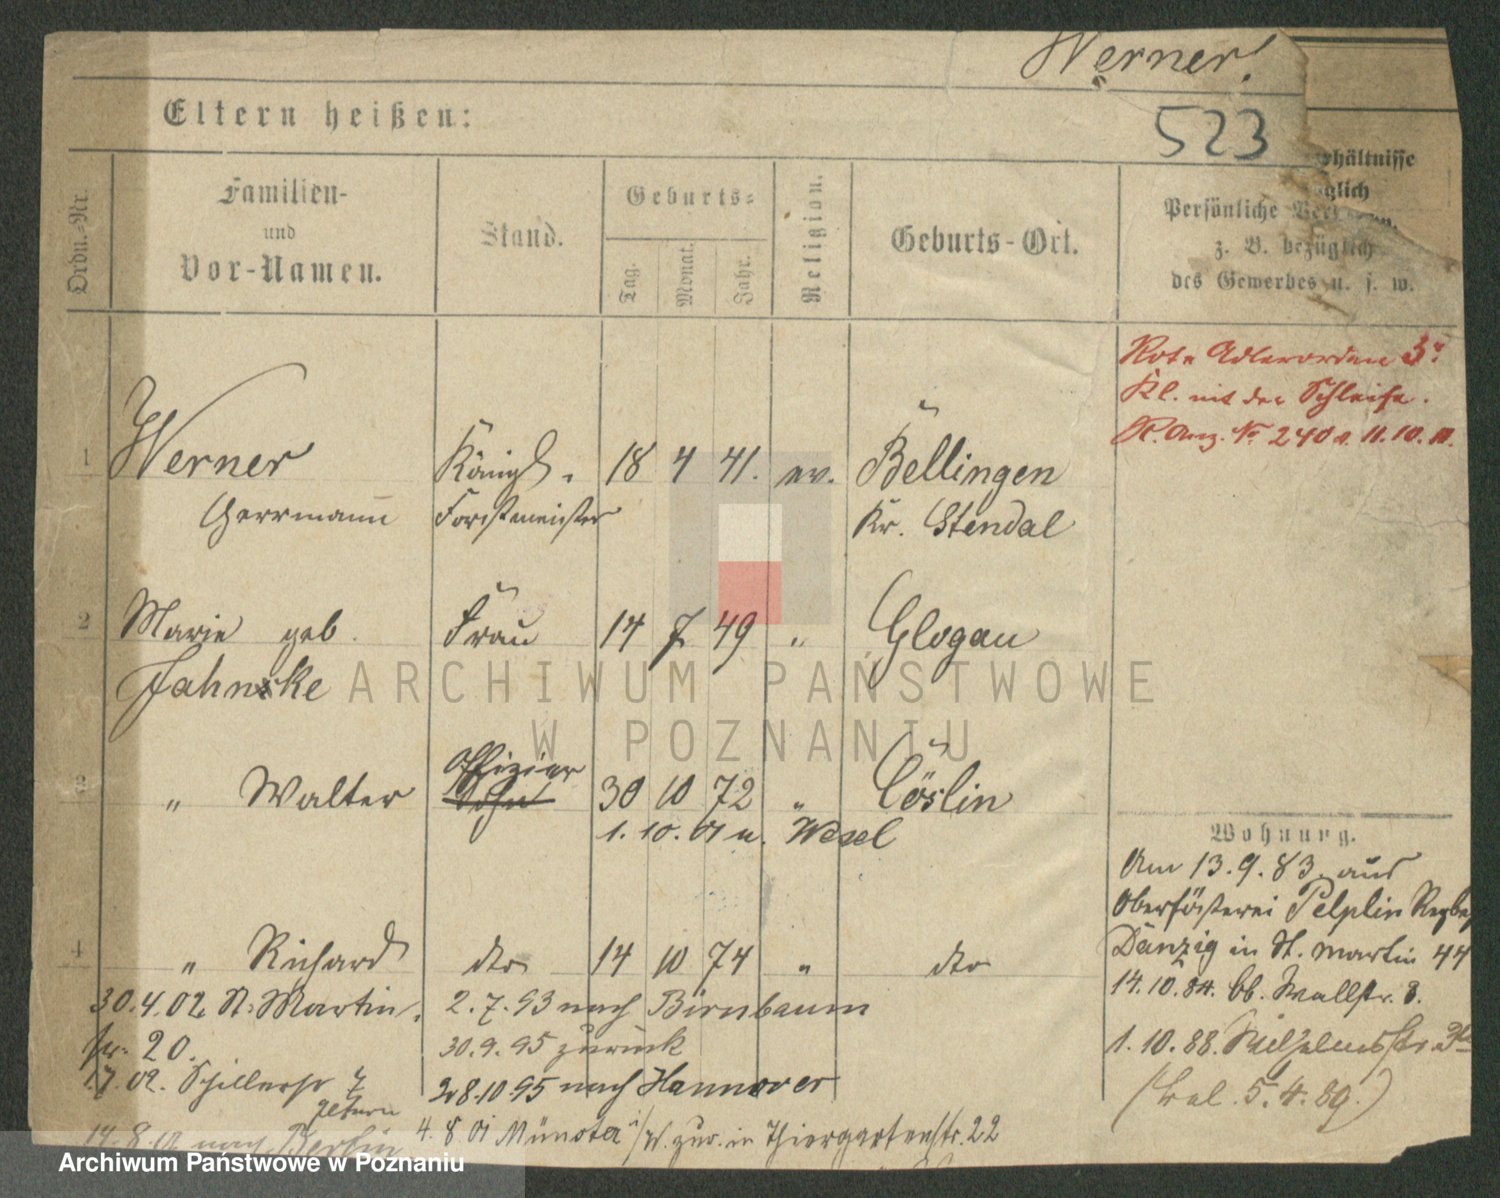 Werner.
523
Eltern heißen:
Ordn.-Nr.
Familien-
und
Vor-Namen.
Stand.
Geburts-
Tag.
Monat.
Jahr.
Religion.
Geburts-Ort.
Persönliche
z. B. bezüglich
des Gewerbes u. s. w.
Rote Adlerorden 3r
Kl. mit der Schleife.
R. Anz. No 240 v. 11.10.
1 Werner Königl. 18 4 41. ev. Bellingen
Herrmann Forstmeister Kr. Stendal
2 Marie geb. Frau 14 7 49 " Glogau
Jahnke
3 " Walter Offizier Sohn 30 10 72 " Cöslin
1. 10. 01 n. Wesel
4 " Richard dto 14 10 74 " dto
30.4.02 St. Martin 2.7.93 nach Birnbaum
20. 30.9.95 zurück
Schillerstr 28.10.95 nach Hannover
gestorben
nach Berlin 4. 8 01 Münster i/W. zur. in Thiergartenstr. 22
Wohnung.
Am 13.9.83. aus
Oberförsterei Pelplin Regbz
Danzig in St. Martin 44
14.10.84. Wallstr. 8.
1.10.88. Wilhelmsstr.
5.4.89.)
ARCHIWUM PAŃSTWOWE
W POZNANIU
Archiwum Państwowe w Poznaniu